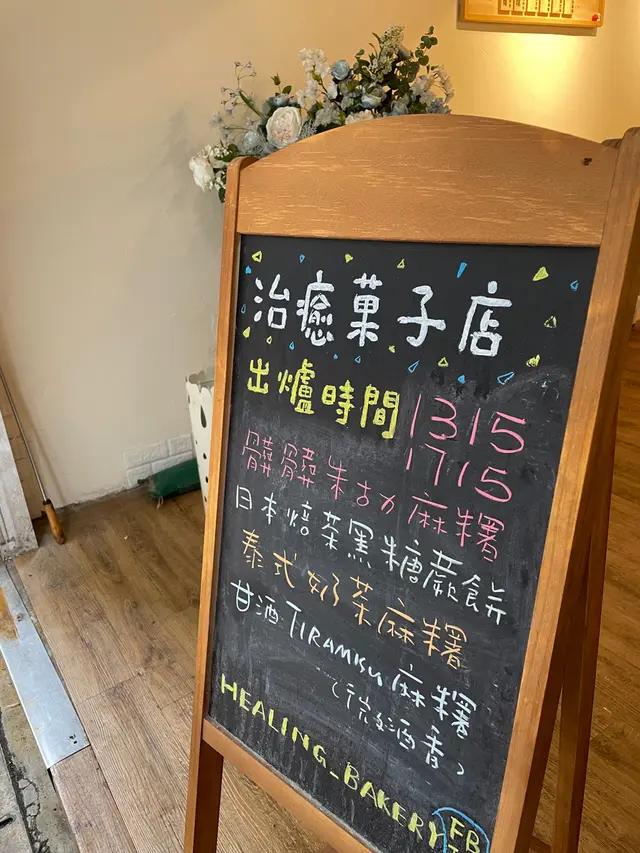 治癒菓子店
出爐時間 1315
1715
髒髒朱古力麻糬
日本焙茶黑糖蕨餅
泰式奶茶麻糬
甘酒TIRAMISU麻糬
HEALING_BAKERY FB